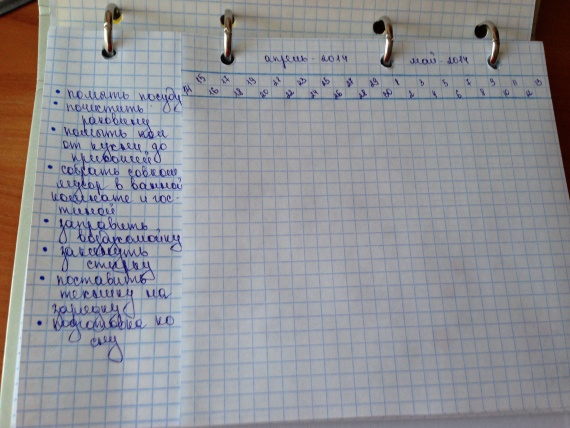 апрель - 2014 май - 2014
15 17 19 21 23 25 27 29 1 3 5 7 9 11 13
14 16 18 20 22 24 26 28 30 2 4 6 8 10 12
• помыть посуду
• почистить
раковину
• помыть пол
от кухни до
прихожей
• собрать совком
мусор в ванной
комнате и гос-
тиной
• заправить
• закинуть
стирку
• поставить
на
зарядку
• подготовка ко
сну